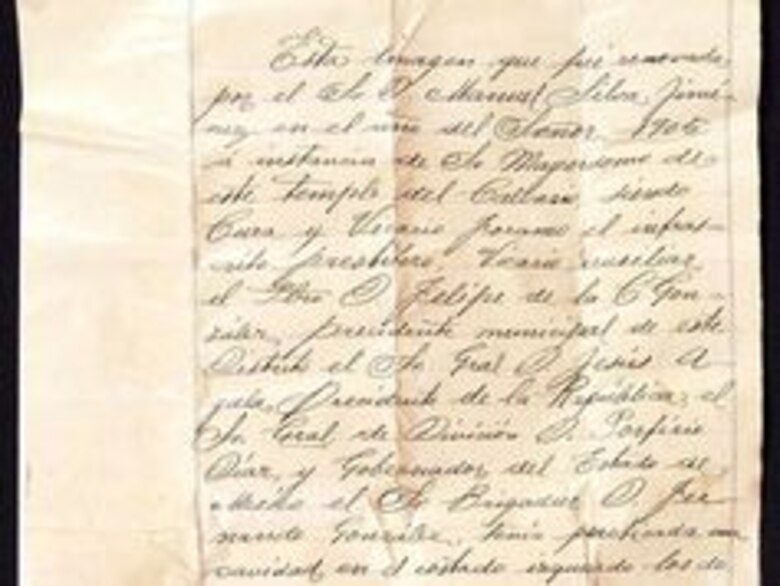 Esta Imagen que fué renovada
por el Sr D. Manuel Silva Jimé-
nez en el año del Señor 1905
á instancia de Sr Mayordomo de
este templo del Calbario siendo
Cura y Vicario foraneo el infras-
crito presbitero, Vicario auxiliar
el Pbro D. Felipe de la C Gon-
zález, presidente municipal de este
Distrito el Sr Gral D. Jesús A
Presidente de la República, el
Sr Gral de División D. Porfirio
Díaz, y Gobernador del Estado de
México el Sr Brigadier D. Fer-
nando González, tenía practicada una
cavidad en el costado izquierdo